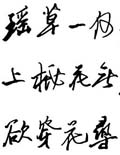 瑶草一何
上桃花无
欲穿花尋